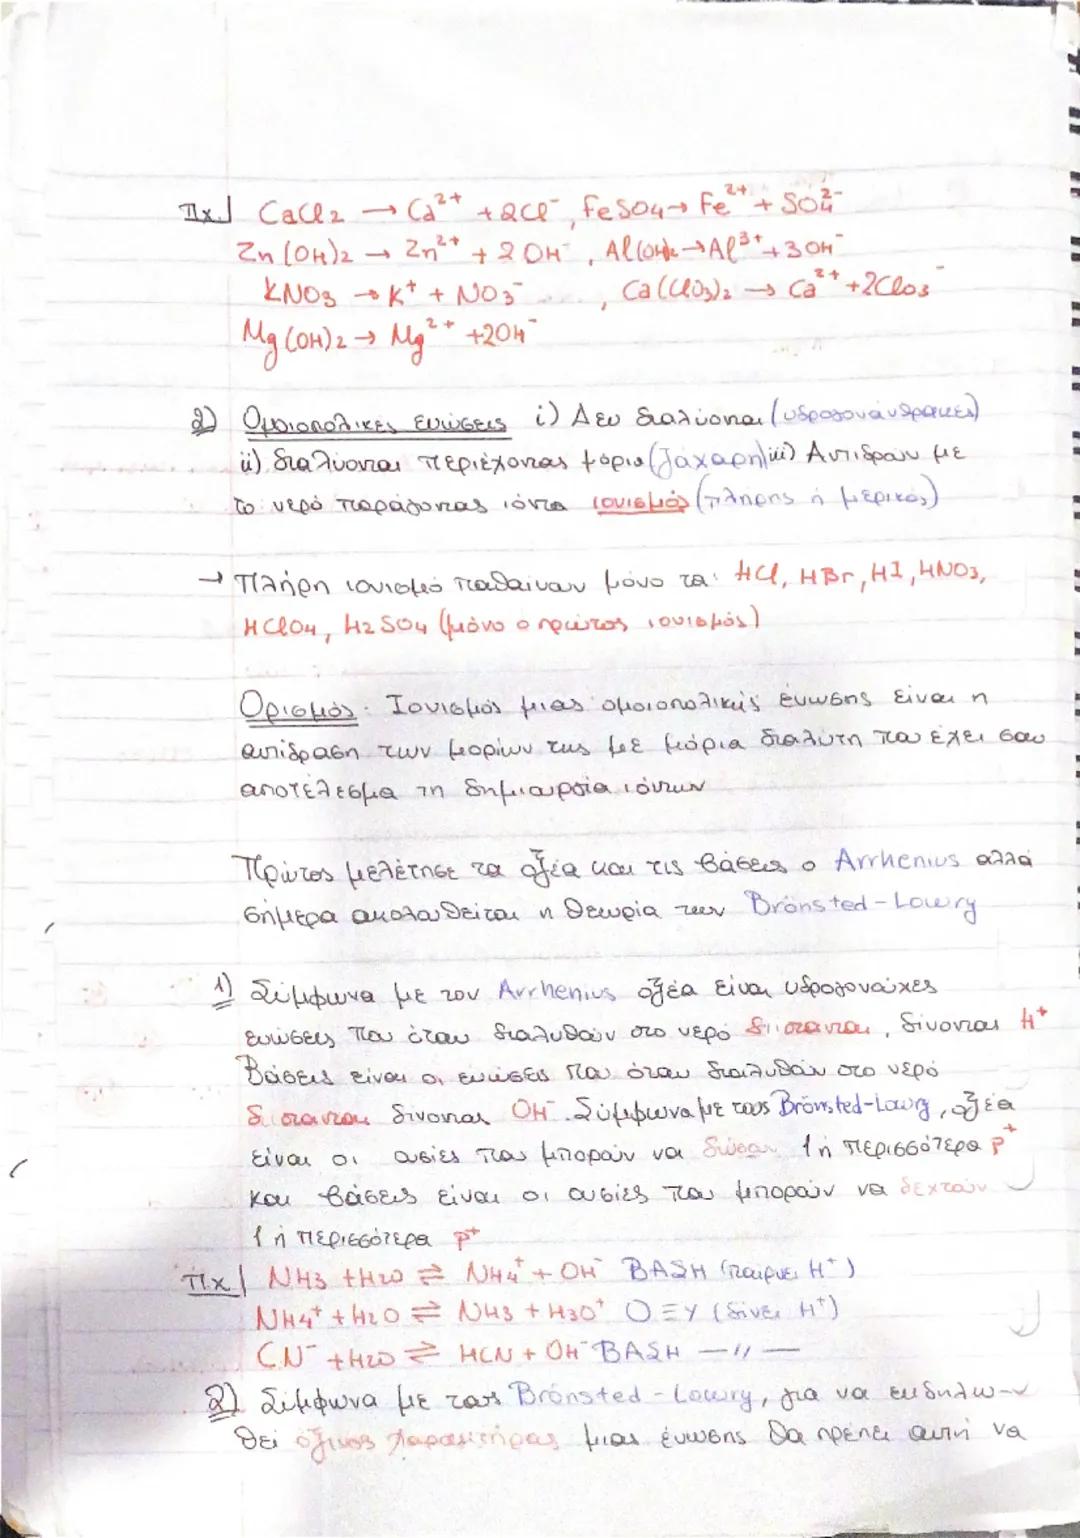 Πχ| CaCl2 → Ca²⁺ + 2Cl⁻, FeSO4 → Fe²⁺ + SO4²⁻
Zn(OH)2 → Zn²⁺ + 2OH⁻, Al(OH)3 → Al³⁺ + 3OH⁻
KNO3 → K⁺ + NO3⁻ , Ca(ClO3)2 → Ca²⁺ + 2ClO3⁻
Mg(OH)2 → Mg²⁺ + 2OH⁻
2) Ομοιοπολικές ενώσεις i) Δεν διαλύονται (υδρογονάνθρακες)
ii) διαλύονται περιέχοντας μόρια (ζάχαρη) iii) Αντιδρούν με
το νερό παράγοντας ιόντα ιονισμός (πλήρης ή μερικός)
→ Πλήρη ιονισμό παθαίνουν μόνο τα: HCl, HBr, HI, HNO3,
HClO4, H2SO4 (μόνο ο πρώτος ιονισμός)
Ορισμός: Ιονισμός μιας ομοιοπολικής ένωσης είναι η
αντίδραση των μορίων της με μόρια διαλύτη που έχει σαν
αποτέλεσμα τη δημιουργία ιόντων
Πρώτος μελέτησε τα οξέα και τις βάσεις ο Arrhenius αλλά
σήμερα ακολουθείται η θεωρία των Brönsted-Lowry
1) Σύμφωνα με τον Arrhenius οξέα είναι υδρογονούχες
ενώσεις που όταν διαλυθούν στο νερό διίστανται, δίνονται H⁺
Βάσεις είναι οι ενώσεις που όταν διαλυθούν στο νερό
διίστανται δίνονται OH⁻. Σύμφωνα με τους Brönsted-Lowry, οξέα
είναι οι ουσίες που μπορούν να δώσουν 1 ή περισσότερα p⁺
και βάσεις είναι οι ουσίες που μπορούν να δεχτούν
1 ή περισσότερα p⁺
Πχ| NH3 + H2O ⇌ NH4⁺ + OH⁻ ΒΑΣΗ (παίρνει H⁺)
NH4⁺ + H2O ⇌ NH3 + H3O⁺ ΟΞΥ (δίνει H⁺)
CN⁻ + H2O ⇌ HCN + OH⁻ ΒΑΣΗ — // —
2) Σύμφωνα με τους Brönsted-Lowry, για να εκδηλω-
θεί όξινος χαρακτήρας μιας ένωσης θα πρέπει αυτή να